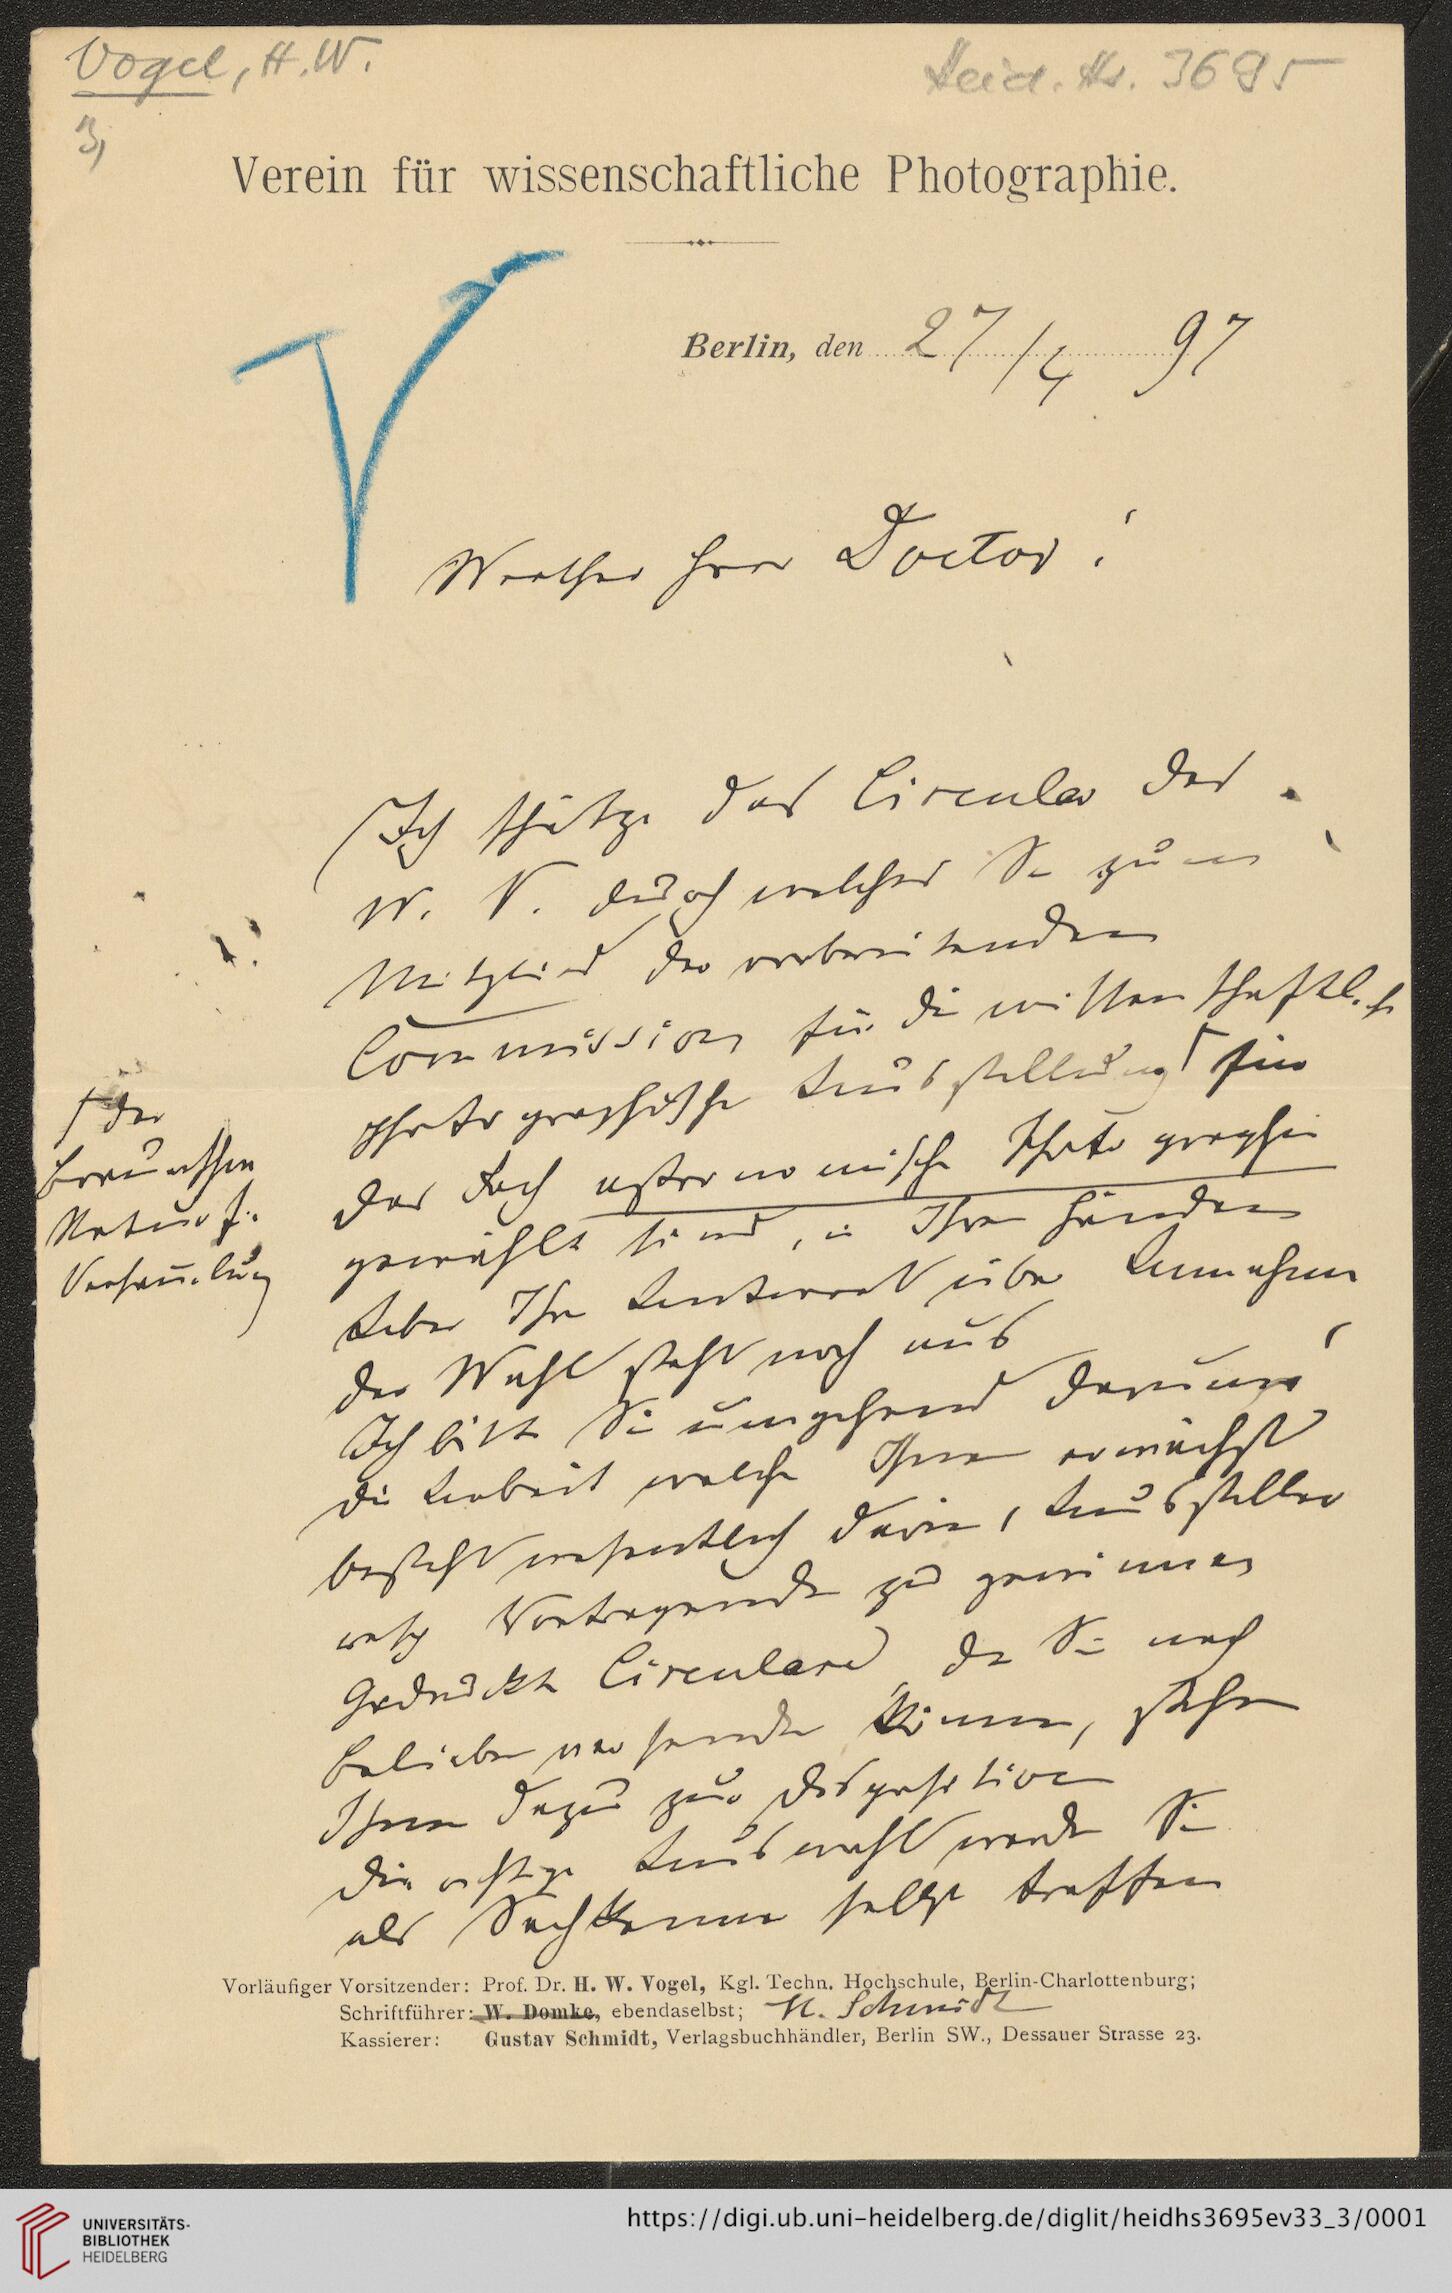 Vogel, H. W.
Heid. Hs. 3695
3,
Verein für wissenschaftliche Photographie.
Berlin, den 27/4 97
V
Werther Herr Doctor!
Ich schätze das Circular des
W. V. durch welches Sie zum
Mitglied der vorbereitenden
Commission für die wissenschaftl.
photographische Ausstellung ſ für
das Fach astronomische Photographie
gewählt sind, in Ihren Händen
Aber Ihre Antwort über Annahme
der Wahl steht noch aus
Ich bitte Sie umgehend darum!
Die Arbeit welche Ihnen erwächst
besteht wesentlich darin, Aussteller
resp Vortragende zu gewinnen
Gedruckte Circulare, die Sie nach
Belieben versenden können, stehen
Ihnen dazu zur Disposition
Die richtige Auswahl werden Sie
als Sachkenner selbst treffen
ſ der
Braunschw
Naturf.
Versammlung
Vorläufiger Vorsitzender: Prof. Dr. H. W. Vogel, Kgl. Techn. Hochschule, Berlin-Charlottenburg;
Schriftführer: W. Domke, ebendaselbst; M. Schmidt
Kassierer: Gustav Schmidt, Verlagsbuchhändler, Berlin SW., Dessauer Strasse 23.
UNIVERSITÄTS-
BIBLIOTHEK
HEIDELBERG
https://digi.ub.uni-heidelberg.de/diglit/heidhs3695ev33_3/0001